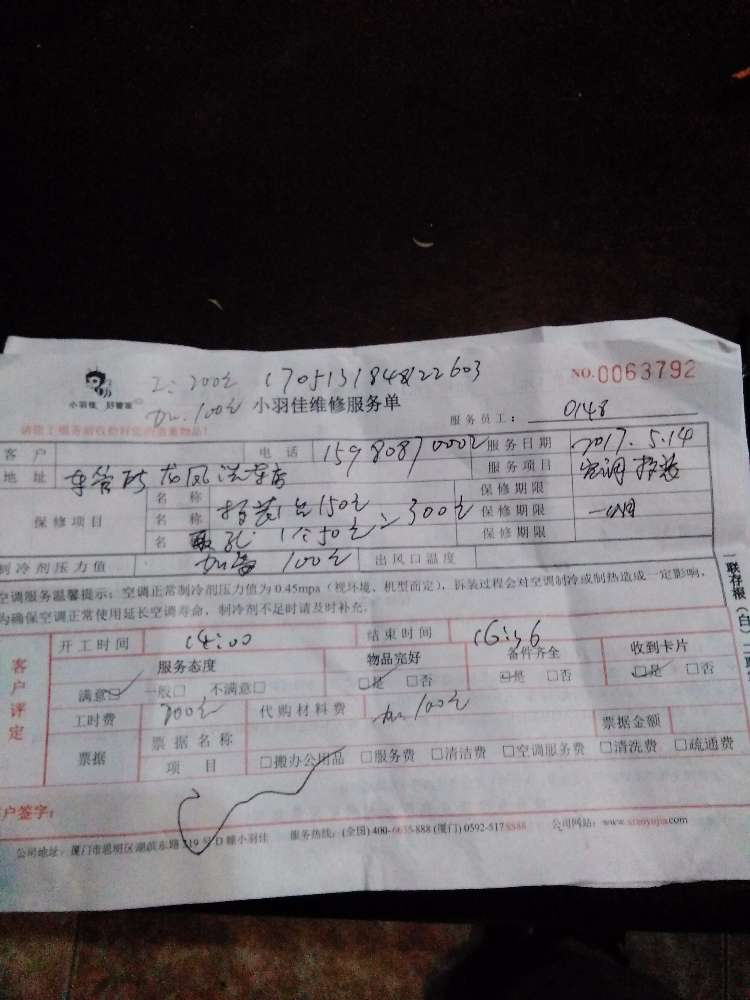 工:200元 170513184822603
NO.0063792
小羽佳 好管家
加:100元 小羽佳维修服务单
服务员工: 0148
客户 电话 15980870002 服务日期 2017.5.14
地址 车管所 龙凤洗车店 服务项目 空调拆装
保修项目 名称 拆装1台150元 保修期限
名称 300元 保修期限 一个月
名 孔 1个50元 保修期限
制冷剂压力值 100元 出风口温度
空调服务温馨提示:空调正常制冷剂压力值为0.45mpa(视环境、机型而定),拆装过程会对空调制冷或制热造成一定影响,
为确保空调正常使用延长空调寿命,制冷剂不足时请及时补充。
一联存根(白)
开工时间 14:00 结束时间 16:36
客户评定
服务态度 物品完好 备件齐全 收到卡片
满意□ 一般□ 不满意□ □是 □否 □是 □否 □是 □否
工时费 200元 代购材料费 加:100元 票据金额
票据 票据名称
项目 □搬办公用品 □服务费 □清洁费 □空调服务费 □清洗费 □疏通费
客户签字:
公司地址:厦门市思明区湖滨东路319号D幢小羽佳 服务热线:(全国)400-6635-888(厦门)0592-5178888 公司网站:www.xiaoyujia.com